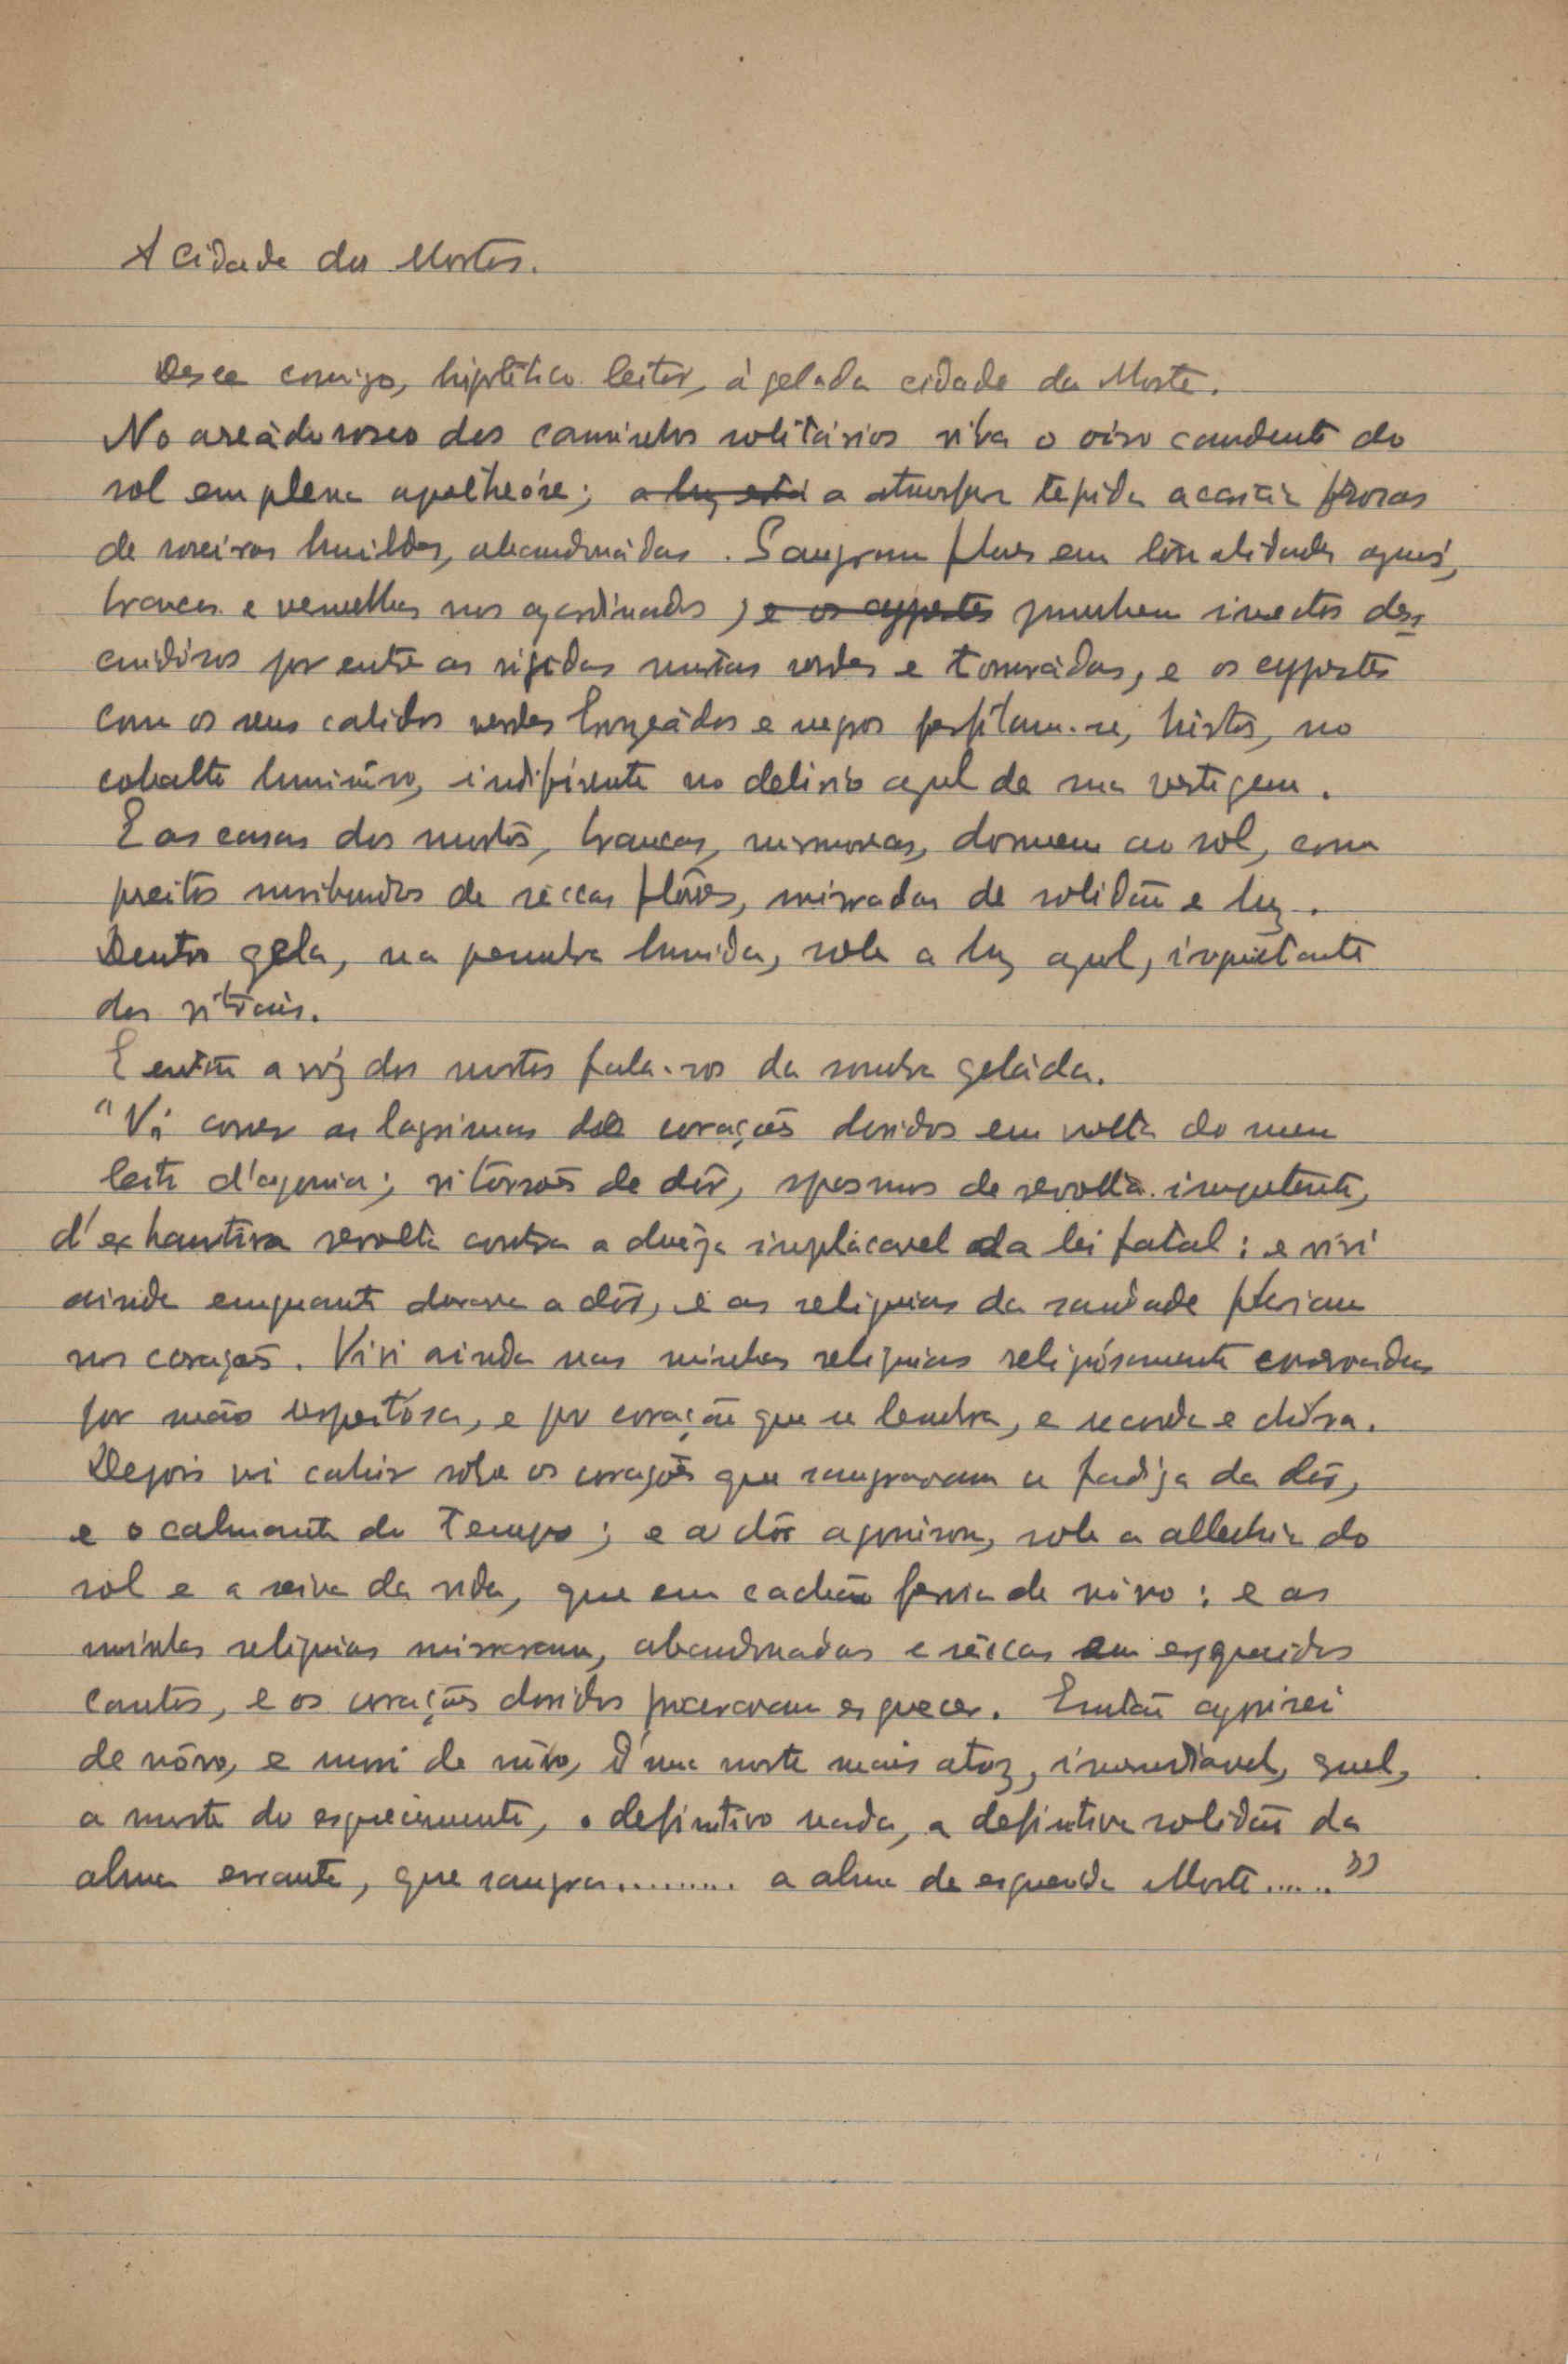 A Cidade dos Mortos.
Desce comigo, hipotético leitor, à gelada cidade da Morte.
No areádo roseo dos caminhos solitários vibra o oiro candente do
sol em plena apotheóse; a luz está a atmosfera tepida acaricia
de roseiras humildes, abandonádas. Sangram flores em tonalidades
brancas e vermelhas nos ajardinados, e os cyprestes zumbem insectos des
cuidósos por entre as rigidas murtas verdes e torneádas, e os cyprestes
com os seus calidos verdes bronzeádos e negros perfilam-se, hirtos, no
cobalto luminôso, indiferente no delirio azul de sua vertigem.
E as casas dos mortos, brancas, marmoreas, dormem ao sol, com
preitos moribundos de séccas flôres, mirradas de solidão e luz.
Dentro gela, na penumbra humida, sob a luz azul, inquietante
dos vitrais.
E então a vóz dos mortos fala-nos da sombra geláda.
"Vi correr as lagrimas dos corações doridos em volta do meu
leito d'agonia; vi torsões de dôr, spasmos de revolta impotente,
d'exhaustiva revolta contra a dureza implacavel da lei fatal: e vivi
ainda emquanto durava a dôr, e as reliquias da saudade floriam
nos corações. Vivi ainda nas minhas reliquias religiósamente conservadas
por mão respeitósa, e por coração que se lembra, e recorda e chóra.
Depois vi cahir sobre os corações que sangravam a fadiga da dôr,
e o calmante do Tempo; e a dôr agonisou, sob a alleluia do
sol e a seiva da vida, que em cachão fervia de nôvo: e as
minhas reliquias mirraram, abandonadas e séccas em esquecidos
cantos, e os corações doridos procuraram esquecer. Então agonisei
de nôvo, e morri de nôvo, d'uma morte mais atroz, irremediavel, cruel,
a morte do esquecimento, o definitivo nada, a definitiva solidão da
alma errante, que sangra......... a alma da esquecida Morte......"